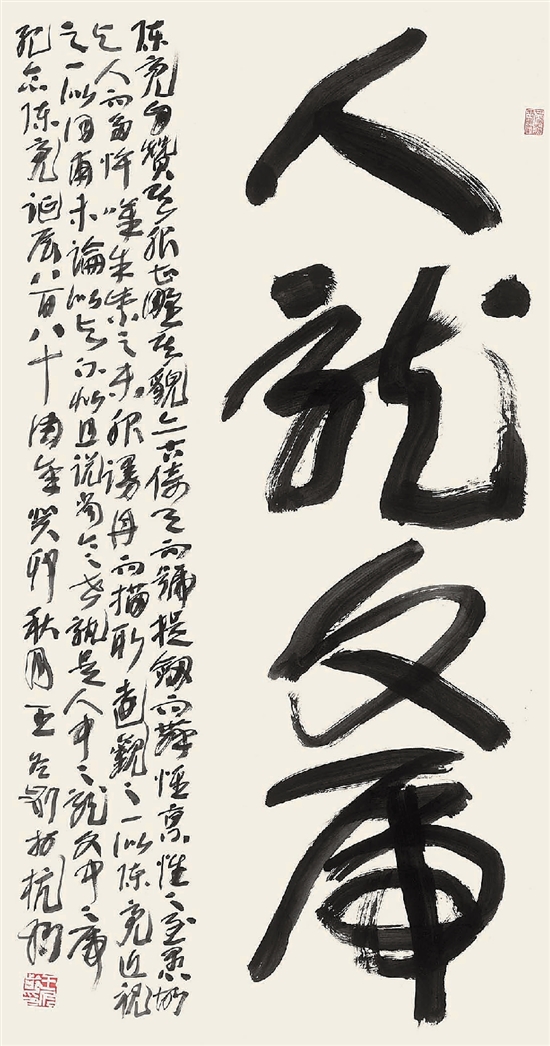 人龍文虎
陈亮自赞其服甚野其貌亦古倚天而號提劍而舞惟禀性之至愚故
与人而多忤嘆朱紫之未服謾丹而描取遠觀之一似陈亮近視
之一似同甫未論似与不似且说當今之世孰是人中之龍文中之虎
纪念陈亮诞辰八百八十周年癸卯秋月王冬齡於杭州